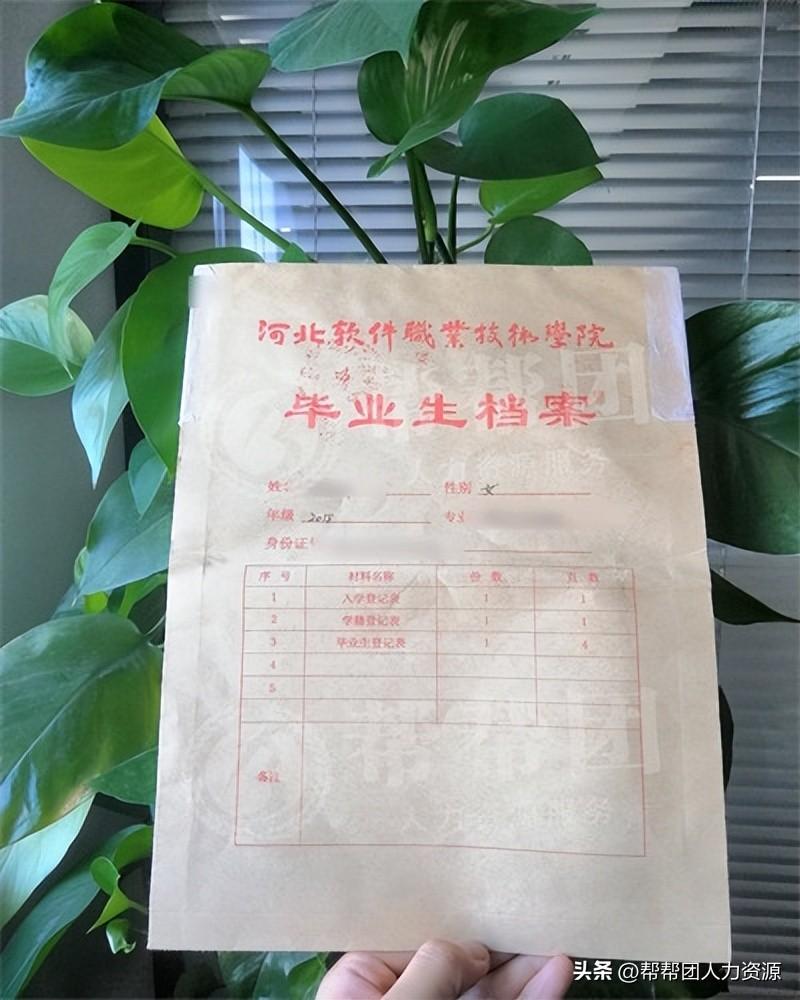 河北软件職業技術學院
毕业生档案
姓: 性别 女
年级 2015 专业
身份证
序 号 材料名称 份 数 页 数
1 入学登记表 1 1
2 学籍登记表 1 1
3 毕业生登记表 1 4
4
5
备注
帮帮团
人力资源服务
帮帮团
人力资源服务
头条 @帮帮团人力资源